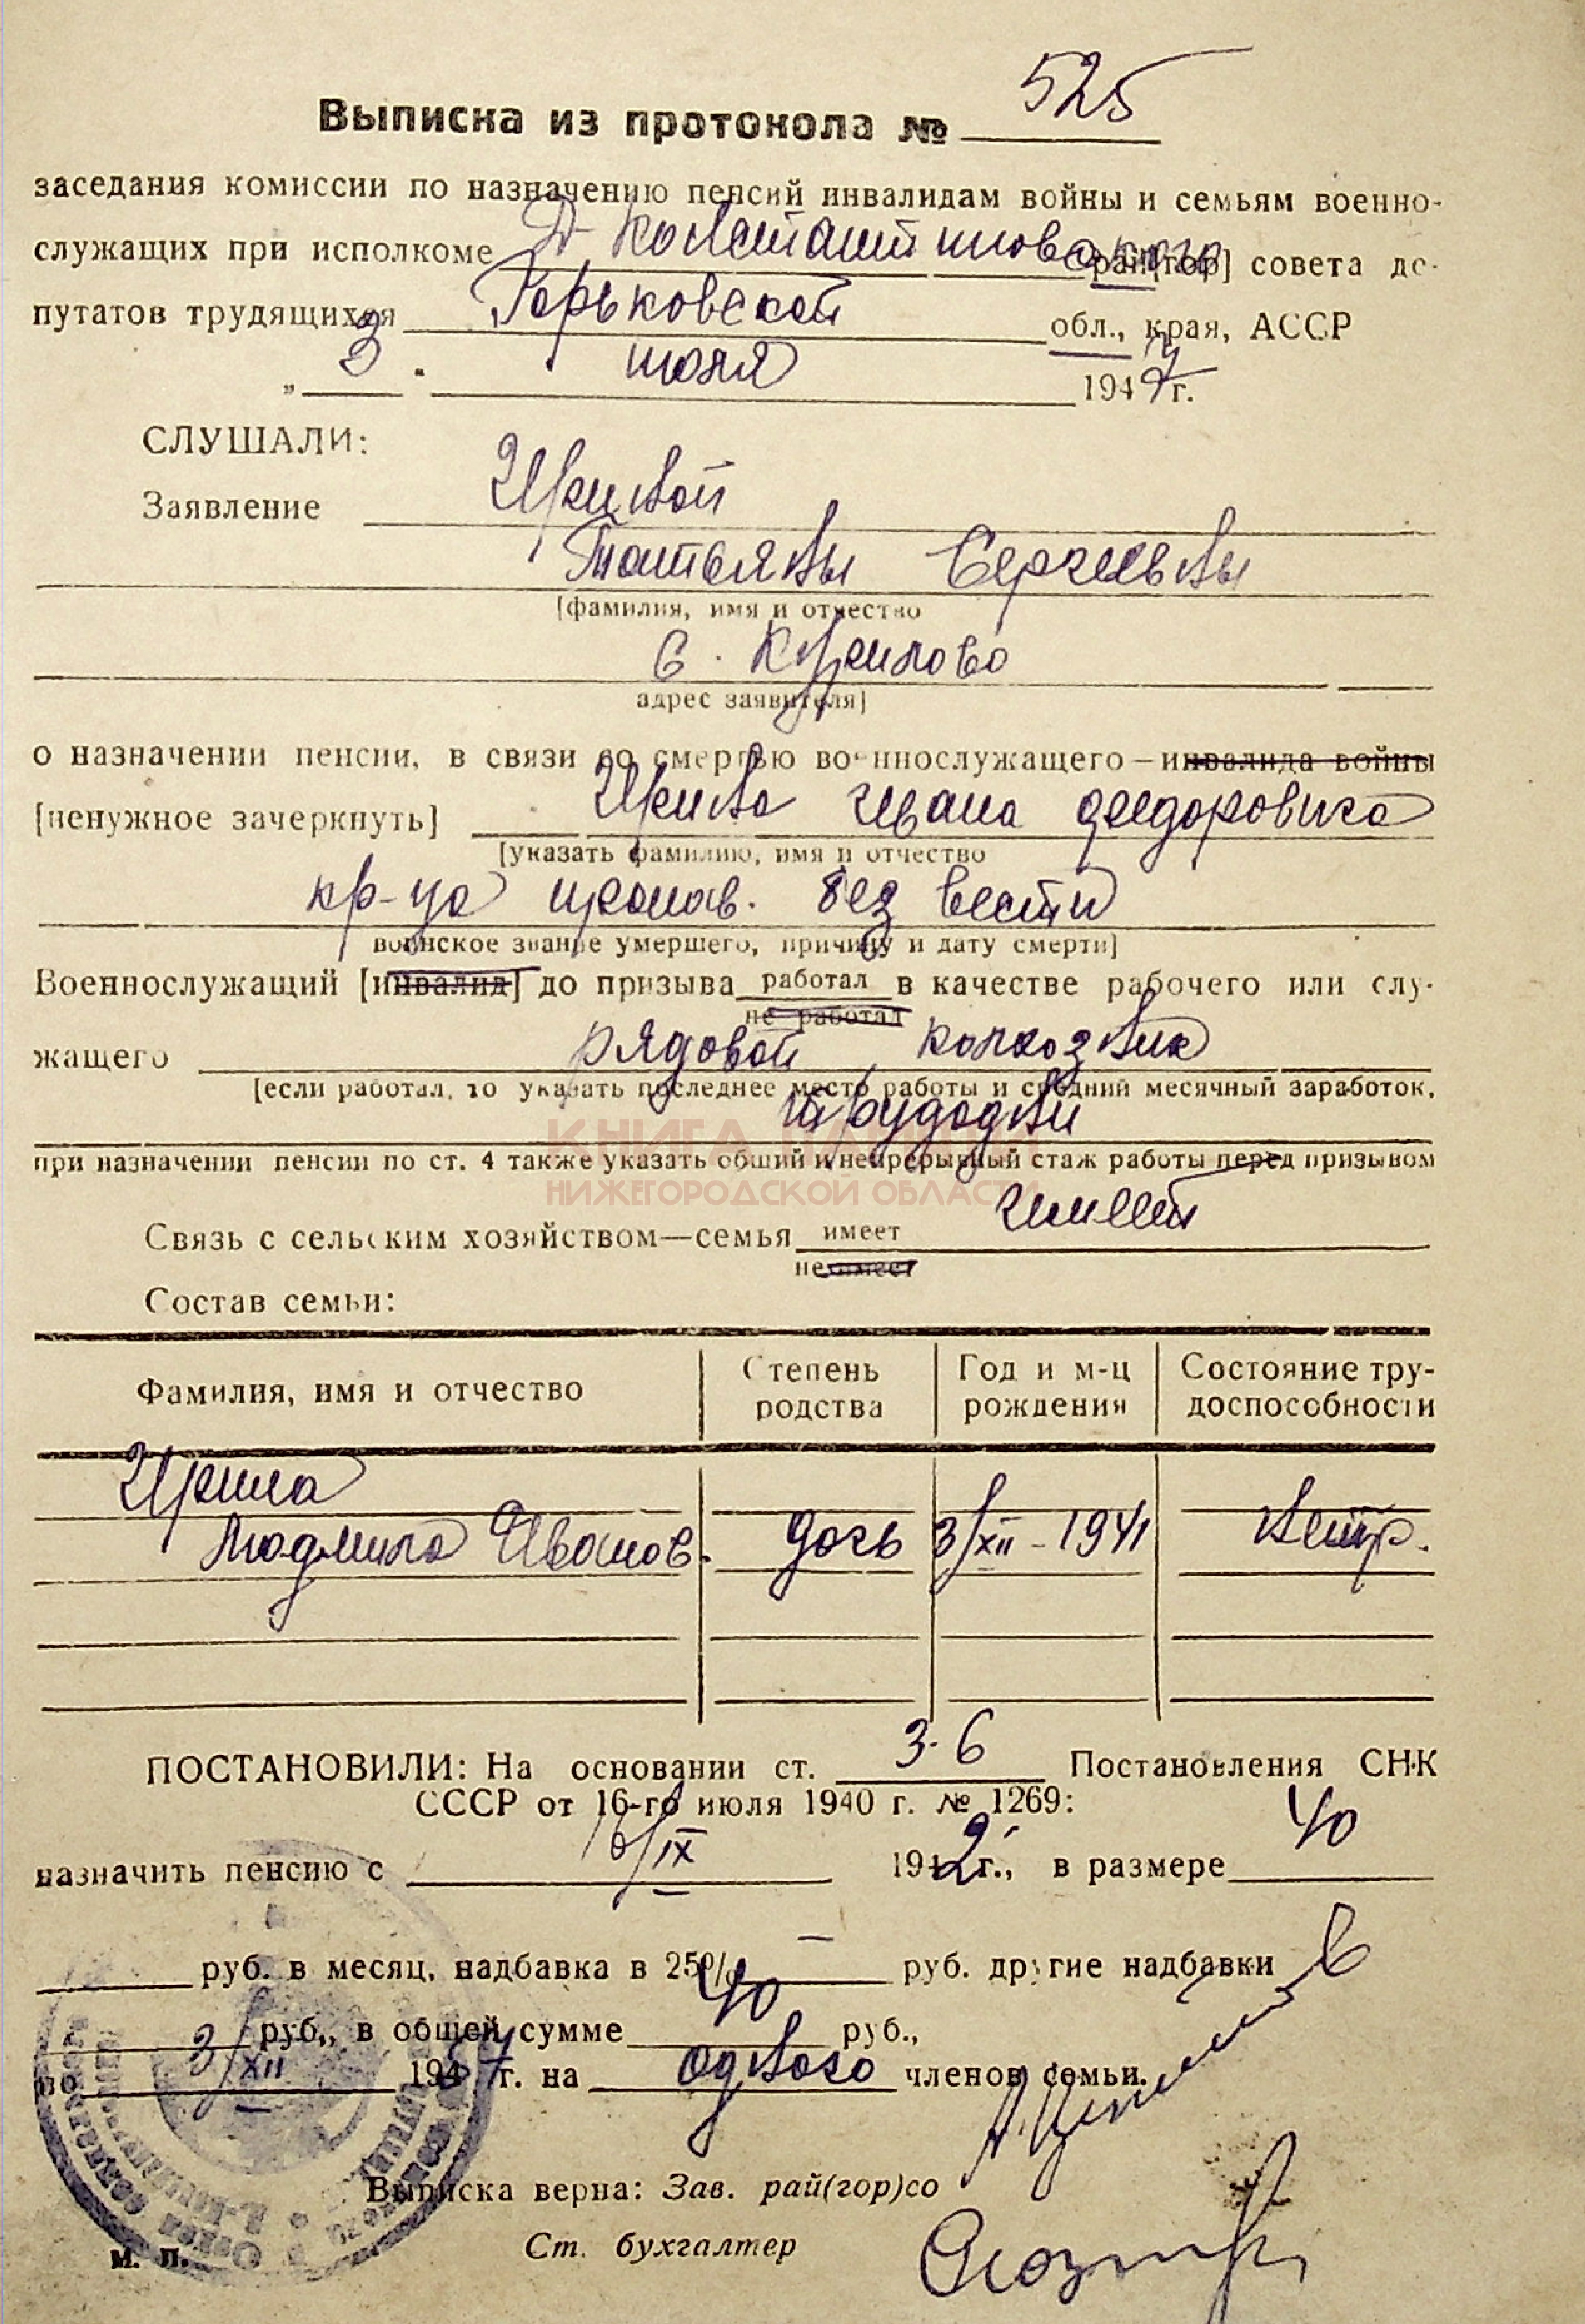 Выписка из протокола № 525
заседания комиссии по назначению пенсий инвалидам войны и семьям военно-
служащих при исполкоме Д-Константиновского рай[гор] совета де-
путатов трудящихся Горьковской обл., края, АССР
„ 3 " июля 1947 г.
СЛУШАЛИ:
Заявление Иркиной
Татьяны Сергеевны
[фамилия, имя и отчество
с.
адрес заявителя]
о назначении пенсии, в связи со смертью военнослужащего – инвалида войны
[ненужное зачеркнуть] Иркина Ивана Федоровича
[указать фамилию, имя и отчество
кр-ца пропав. без вести
воинское звание умершего, причину и дату смерти]
Военнослужащий [инвалид] до призыва работал в качестве рабочего или слу-
не работал
жащего рядовой колхозник
[если работал, то указать последнее место работы и средний месячный заработок,
трудодни
КНИГА ПАМЯТИ
при назначении пенсии по ст. 4 также указать общий и непрерывный стаж работы перед призывом
НИЖЕГОРОДСКОЙ ОБЛАСТИ
Связь с сельским хозяйством—семья имеет имеет
не имеет
Состав семьи:
Фамилия, имя и отчество Степень родства Год и м-ц рождения Состояние тру-доспособности
Иркина
Людмила Иванов. дочь 3/XII-1941 нетр.
ПОСТАНОВИЛИ: На основании ст. 3-6 Постановления СНК
СССР от 16-го июля 1940 г. № 1269:
назначить пенсию с 16/IX 1942 г., в размере 40
руб. в месяц, надбавка в 25% — руб. другие надбавки
руб., в общей сумме 40 руб.,
по 3/XII 1957 г. на одного членов семьи.
Выписка верна: Зав. рай(гор)со
Ст. бухгалтер
м. п.